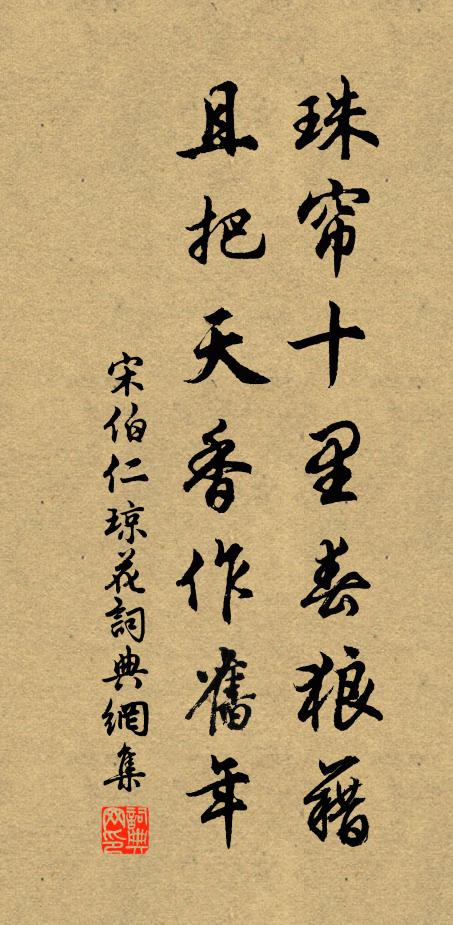 珠帘十里春狼藉
且把天香作舊年
宋伯仁琼花詞典網集
詞典网印